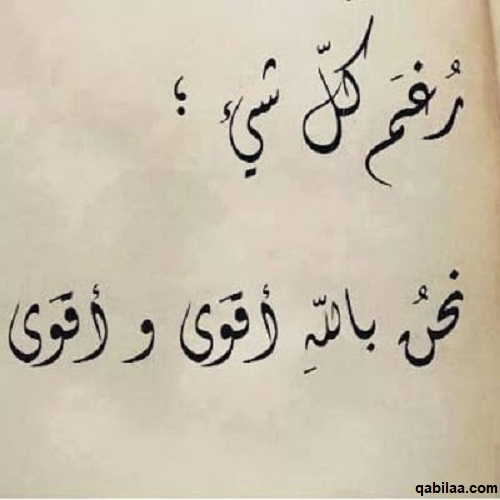 رُغمَ كلّ شيء ؛
نحنُ باللّهِ أقوَى و أقوَى
qabilaa.com